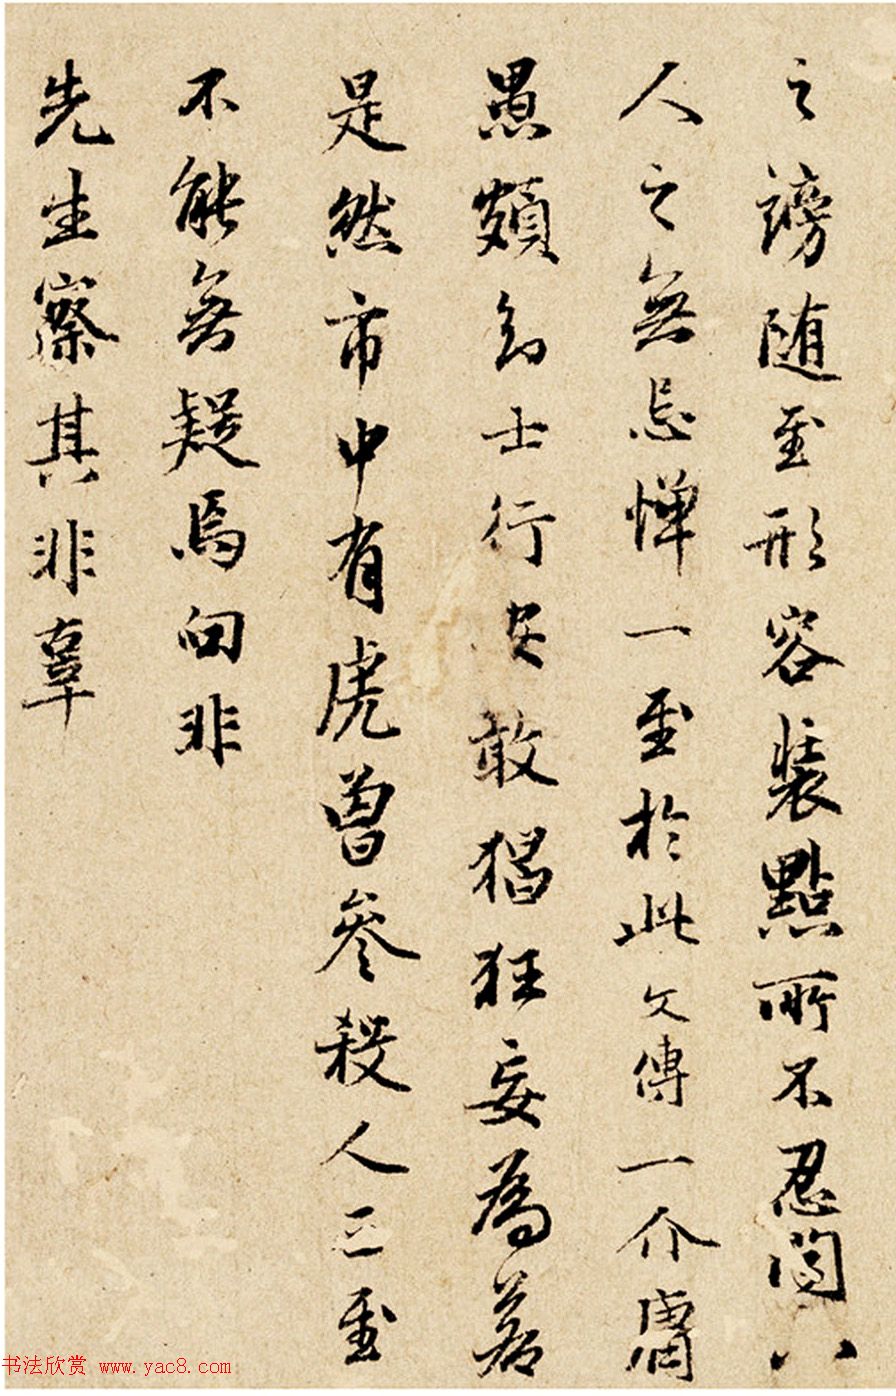 之謗随至形容装點所不忍聞八
人之無忌憚一至於此文傳一介庸
愚頗知士行安敢猖狂妄為若
是然市中有虎曾參殺人三至
不能無疑焉向非
先生察其非辜
书法欣赏 www.yac8.com